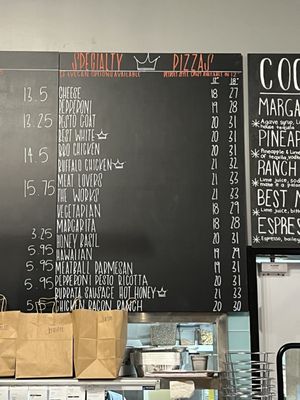 SPECIALTY PIZZAS
CHEESE 18 27
13.5
PEPPERONI 19 28
PESTO GOAT 20 31
13.25
BEST WHITE 20 31
BBQ CHICKEN 20 31
14.5
BUFFALO CHICKEN 21 32
MEAT LOVERS 21 33
15.75
THE WORKS 21 33
VEGETARIAN 18 29
MARGARITA 18 28
3.25
HONEY BASIL 20 31
5.95
HAWAIIAN 19 29
5.95
MEATBALL PARMESAN 19 31
5.95
PEPPERONI PESTO RICOTTA 20 31
5.95
BURRATA SAUSAGE HOT HONEY 21 33
CHICKEN BACON RANCH 20 30
COCK
MARGA
Agave syrup, L
PINEAP
Pineapple & Lime
of tequila, vodk
RANCH
Lime juice, soda
BEST M
Lime juice, bar
ESPRES
Espresso, baile